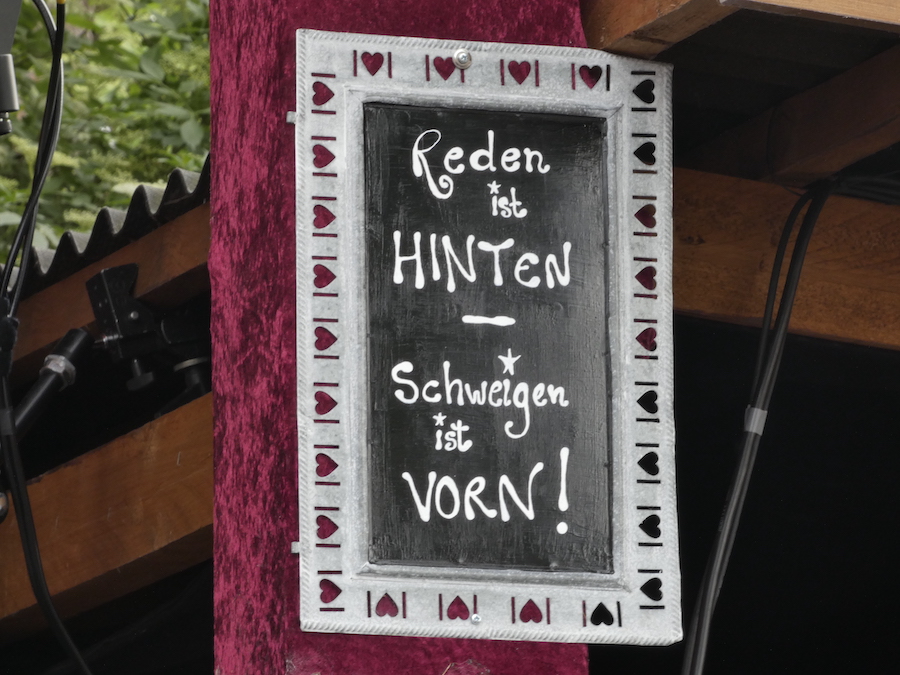 Reden
ist
HINTEN
–
Schweigen
ist
VORN!